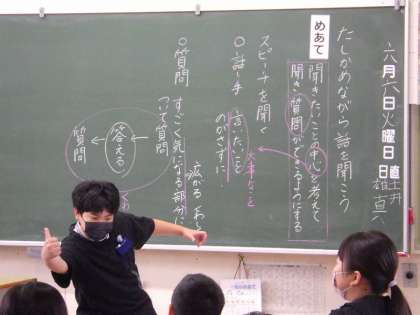 六月六日火曜日
日直
たしかめながら話を聞こう
めあて
聞きたいことの中心を考えて
聞き、質問ができるようにする
スピーチを聞く
○話し手
言いたいこと
大事なこと
のがさずに。
○質問
すごく気になる部分に
ついて質問
広がる
答える
質問